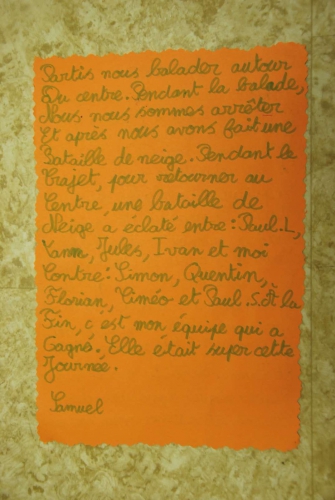 Partis nous balader autour
Du centre. Pendant la balade,
Nous nous sommes arrêter
Et après nous avons fait une
Bataille de neige. Pendant le
Trajet, pour retourner au
Centre, une bataille de
Neige a éclaté entre : Paul.L,
Yann, Jules, Ivan et moi
Contre : Simon, Quentin,
Florian, Timéo et Paul.S. À la
Fin, c est mon équipe qui a
Gagné. Elle était super cette
Journée.
Samuel